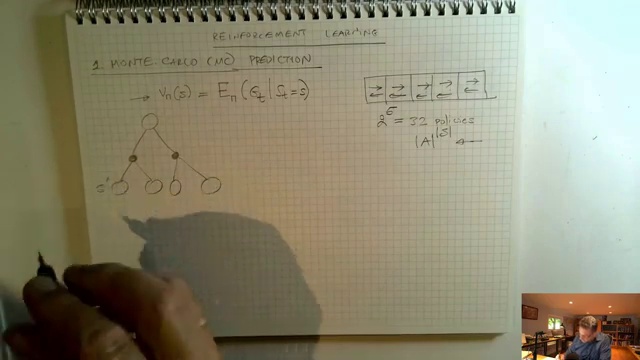 REINFORCEMENT LEARNING
1. MONTE-CARLO (MC) PREDICTION
→ Vπ(s) = Eπ(Gt | St=s)
2^5 = 32 policies
|A|^|S| ←
s'